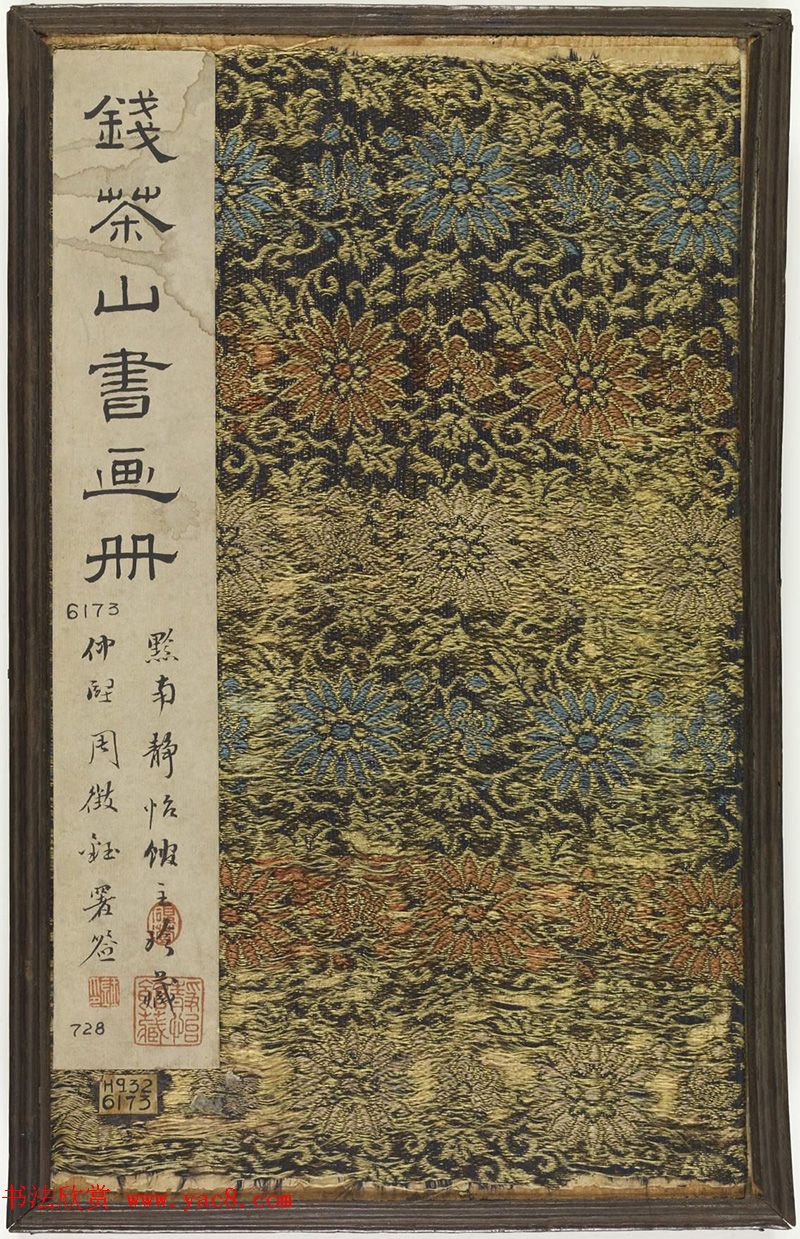 錢茶山書画册
6173
黔南静怡館主珍藏
仲熙周徵鈺署签
靜怡館藏
728
H932
6173
书法欣赏 www.yac8.com